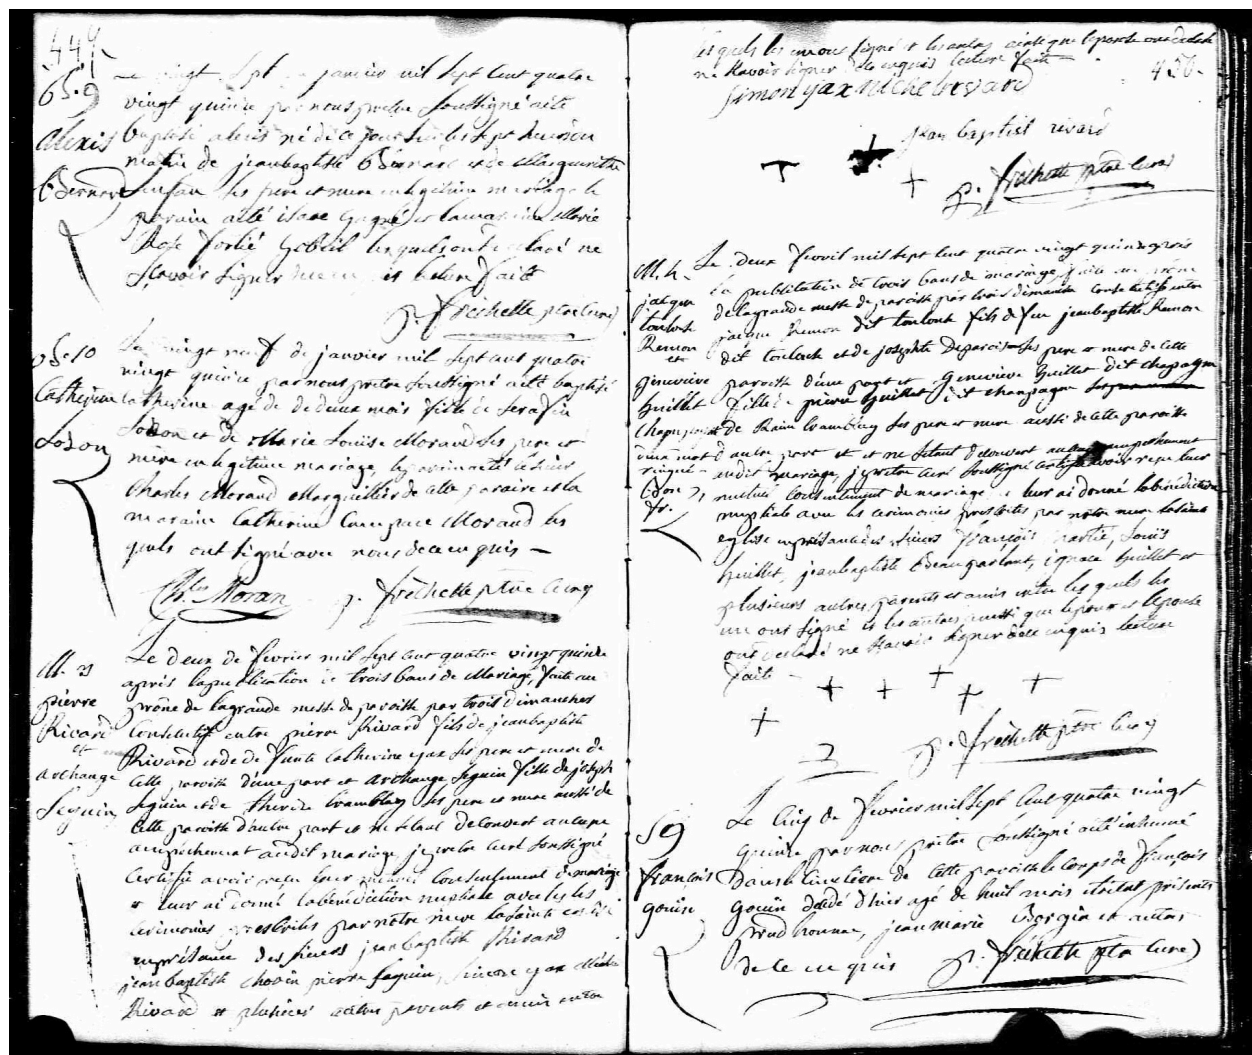 449
Le vingt sept janvier mil sept cent quatre
B. 9
vingt quinze par nous pretre soussigné a été
Alexis
baptisé alexis né de ce jour sur les sept heures du
matin de jean baptiste Bernard et de Margueritte
Bernard
ses pere et mere en legitime mariage le
parain a été isaac gagné et la maraine Marie
Rose Fortié gobeil lesquels ont declaré ne
sçavoir signer lecture faite
p. frechette ptre Curé
B. 10
Le vingt neuf de janvier mil sept cent quatre
vingt quinze par nous pretre soussigné a été baptisé
Catherine
catherine agé de de deux mois fille de serafin
Loson
Lozon et de Marie Louise Morand ses pere et
mere en legitime mariage, le parain a été le sieur
Charles Morand Marguillier de cette paroisse et la
maraine Catherine Morand les
quels ont signé avec nous de ce enquis —
Chles Moran p. frêchette ptre Curé
M. 3
Le deux de fevrier mil sept cent quatre vingt quinze
après la publication de trois bans de Mariage, faite au
pierre
prône de la grande messe de paroisse par trois dimanches
Rivard
Consecutif entre pierre Rivard fils de jean baptiste
et
Rivard et de de funte Catherine yax ses pere et mere de
archange
cette paroisse d'une part et archange seguin fille de joseph
Seguin
Seguin et de therese tramblay ses pere et mere aussi de
cette paroisse d'autre part et ne s'etant decouvert aucune
empechement audit mariage, je pretre curé soussigné
certifie avoir reçu leur mutuel consentement de mariage
et leur ai donné la bénédiction nuptiale avec les
ceremonies prescrites par nôtre mere la sainte eglise
en présence des sieurs jean baptiste Rivard
jean baptiste chovin pierre seguin, simon yax Michel
Rivard et plusieurs autres parents et amis entre
450.
lesquels les uns ont signé et les autres ainsi que l'epouse ont declaré
ne sçavoir signer de ce enquis lecture faite —
simon yax Michel rivard
jean baptist rivard
p. frêchette ptre Curé
M. 4.
Le deux fevril mil sept cent quatre vingt quinze après
la publication de trois bans de mariage, faite au prône
jacque
de la grande messe de paroisse par trois dimanche consecutifs entre
toulouse
jacque Renion dit toulouse fils de feu jean baptiste Renion
Renion
dit toulouse et de Josephte Deparois ses pere et mere de cette
et
genevieve
paroisse d'une part et Genevieve huillet dit chapagne
huillet
fille de pierre huillet dit champagne
Champagne
de tramblay ses pere et mere aussi de cette paroisse
d'autre part et et ne s'etant decouvert aucun empechement
audit mariage, je pretre curé soussigné certifie avoir reçu leur
mutuel consentement de mariage et leur ai donné la bénédiction
nuptiale avec les ceremonies prescrites par nôtre mere la sainte
eglise en présence des sieurs François , Louis
huillet, jean baptiste Beauparlant, ignace huillet et
plusieurs autres parents et amis entre lesquels les
un ont signé et les autres aussi que l'epoux et l'epouse
ont declaré ne sçavoir signer de ce enquis lecture
faite —
p. frêchette ptre Curé
S 9
Le cinq de fevrier mil sept cent quatre vingt
quinze par nous pretre soussigné a été inhumé
françois
dans le cimetiere de cette paroisse le corps de françois
gouin
gouin decedé d'hier agé de huit mois etoient présents
prudhomme, jean marie Borgia et autres
de ce enquis p. frêchette ptre Curé